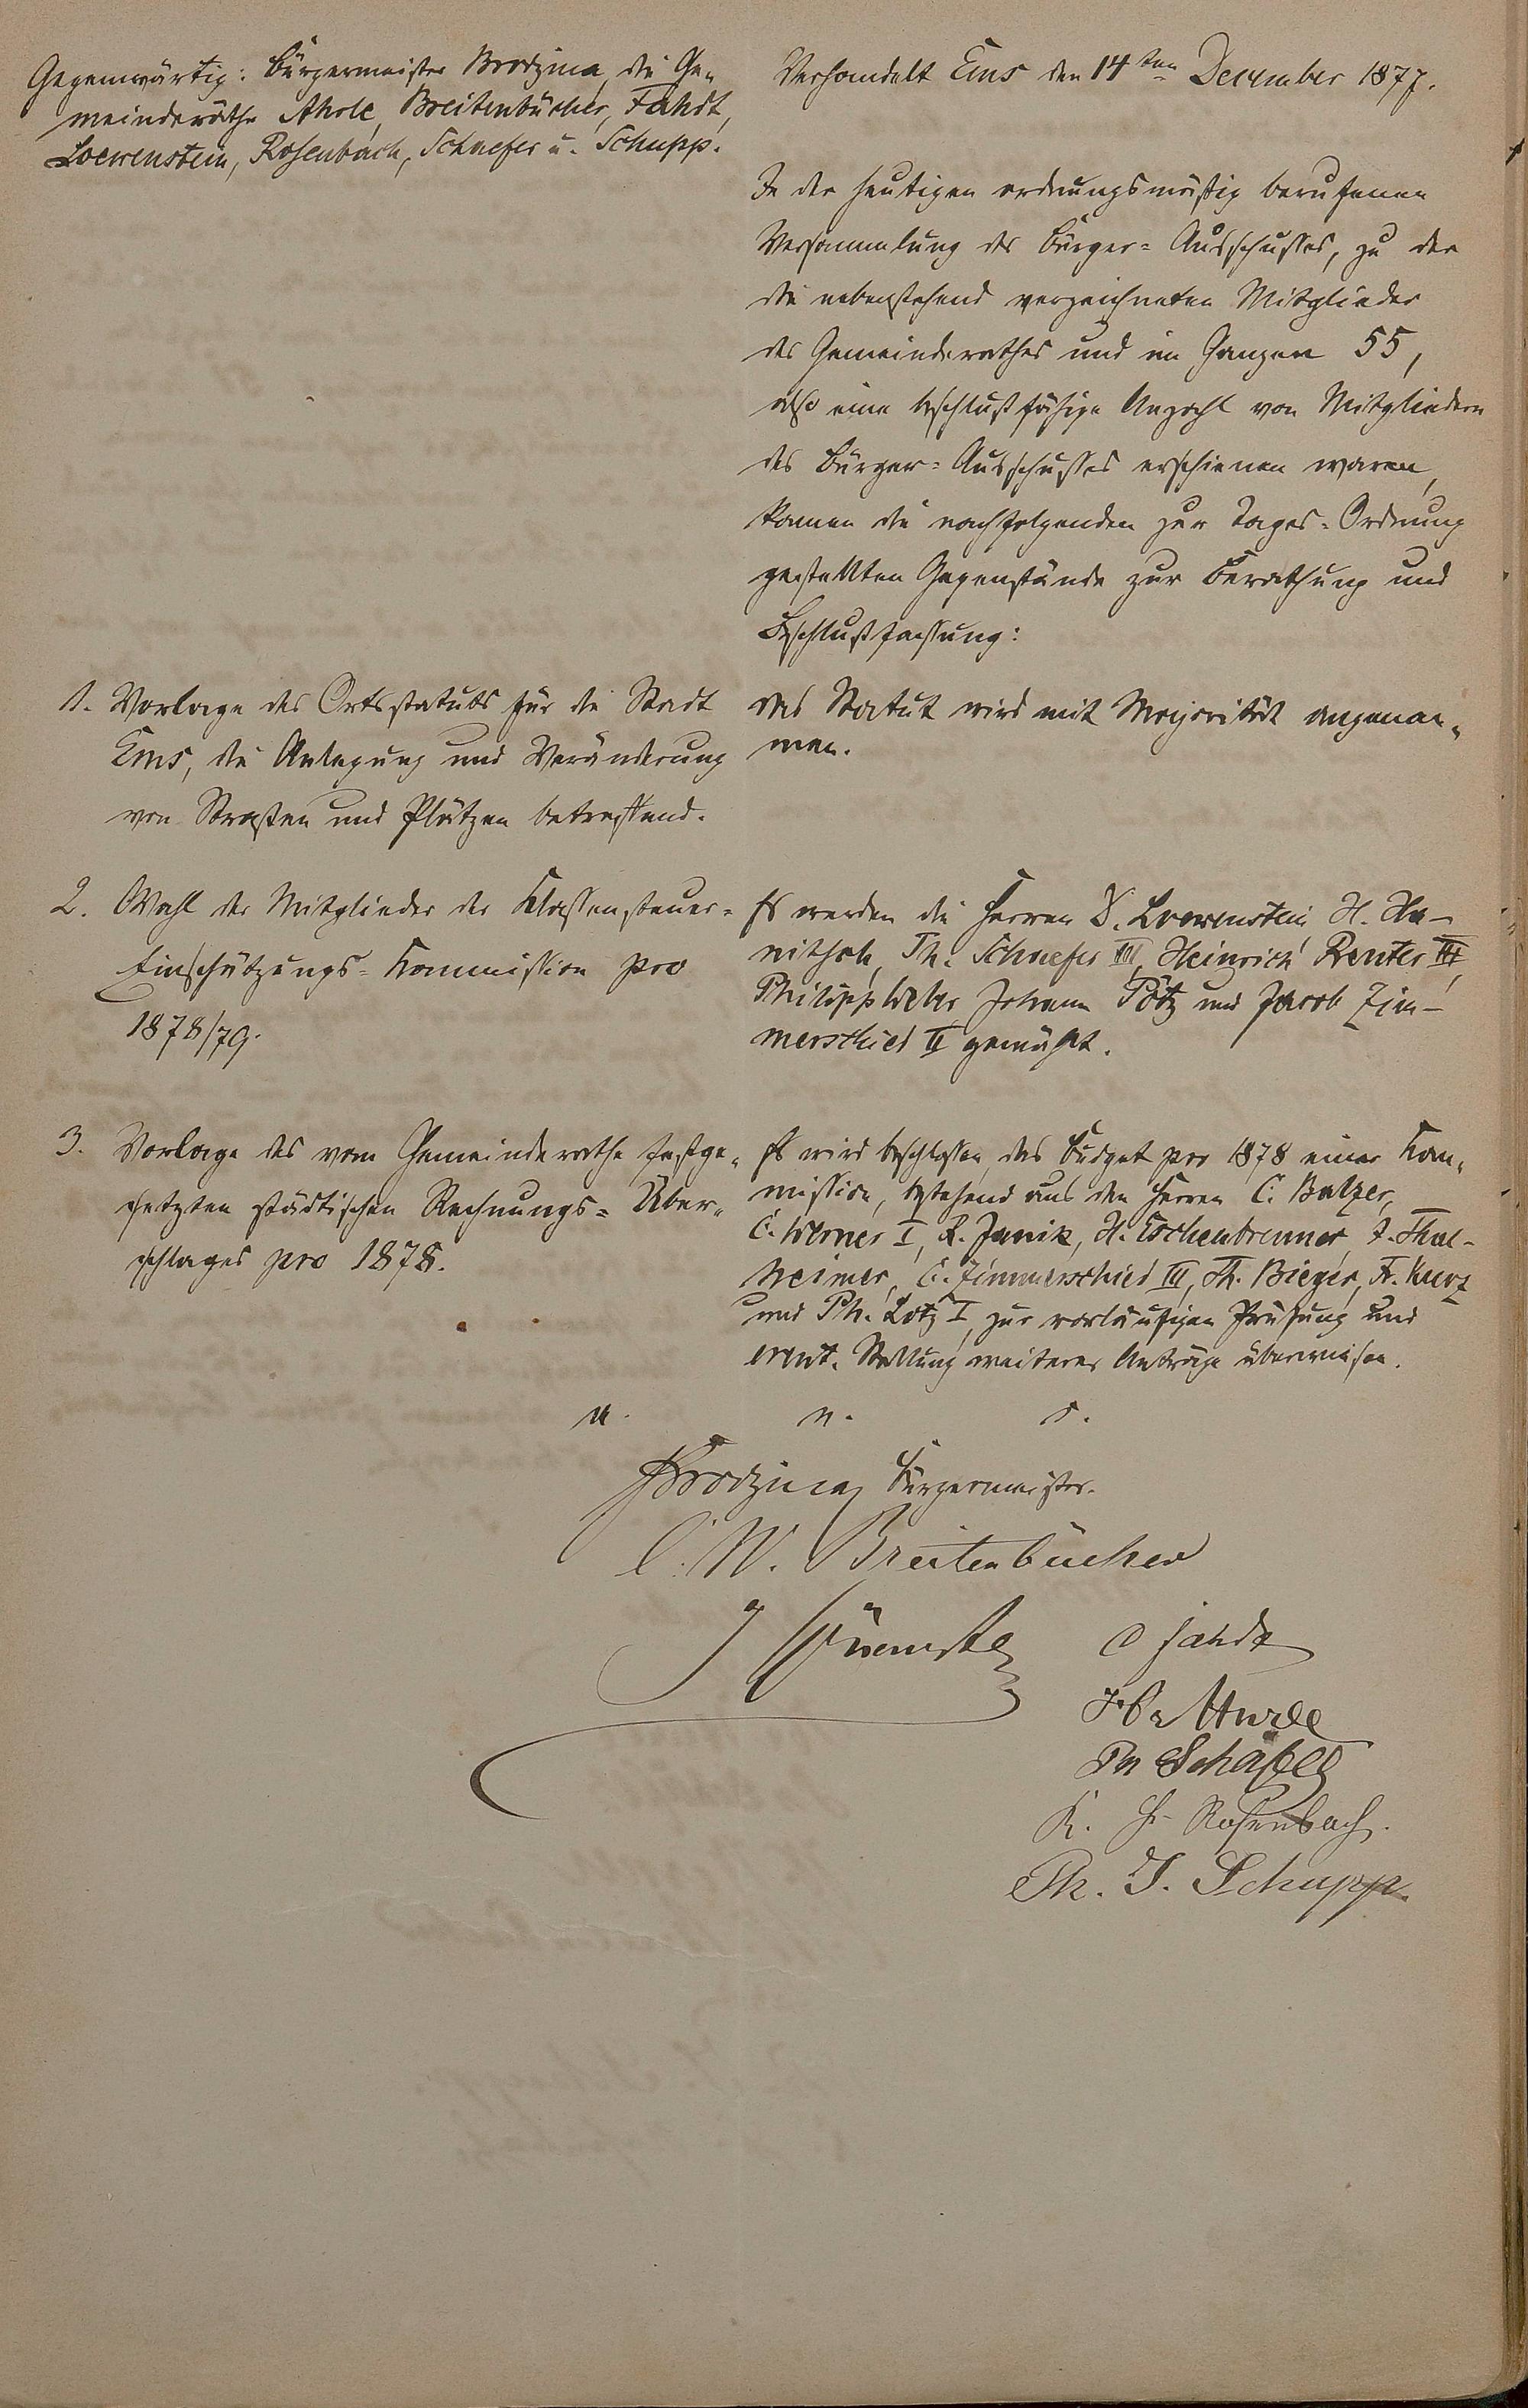 Gegenwärtig: Bürgermeister Brodzina, die Ge-
meinderäthe Ahrle, Breitenbücher, Fahdt,
Loewenstein, Rosenbach, Schaefer u. Schupp.
Verhandelt Ems den 14ten December 1877.
In der heutigen ordnungsmäßig berufenen
Versammlung des Bürger-Ausschusses, zu der
die nebenstehend verzeichneten Mitglieder
des Gemeinderathes und im Ganzen 55,
also eine beschlußfähige Anzahl von Mitgliedern
des Bürger-Ausschusses erschienen waren,
kamen die nachfolgenden zur Tages-Ordnung
gestellten Gegenstände zur Berathung und
Beschlußfassung:
1. Vorlage des Ortsstatuts für die Stadt
Ems, die Anlegung und Veränderung
von Straßen und Plätzen betreffend.
Das Statut wird mit Majorität angenom-
men.
2. Wahl der Mitglieder der Klassensteuer-
Einschätzungs-Kommission pro
1878/79.
Es werden die Herren D. Loewenstein H.
Th. Schaefer III, Heinrich Reuter III,
Philipp Weber Johann Pötz und Jacob Zim-
merschied II gewählt.
3. Vorlage des vom Gemeinderathe festge-
setzten städtischen Rechnungs-Über-
schlages pro 1878.
Es wird beschlossen, das Budget pro 1878 einer Kom-
mission, bestehend aus den Herren C. Balzer,
C. Werner I, R. Janik, H. Eschenbrenner, J. Thal-
heimer, C. Zimmerschied III, Th. Bieger, Fr. Kurz
und Ph. Lotz I, zur vorläufigen Prüfung und
event. Stellung weiterer Anträge überwiesen.
u. n. s.
Brodzina Bürgermeister.
C. W. Breitenbücher
J
C Fahdt
Ph Schäfer
K. Fr Rosenbach.
Ph. J. Schupp.